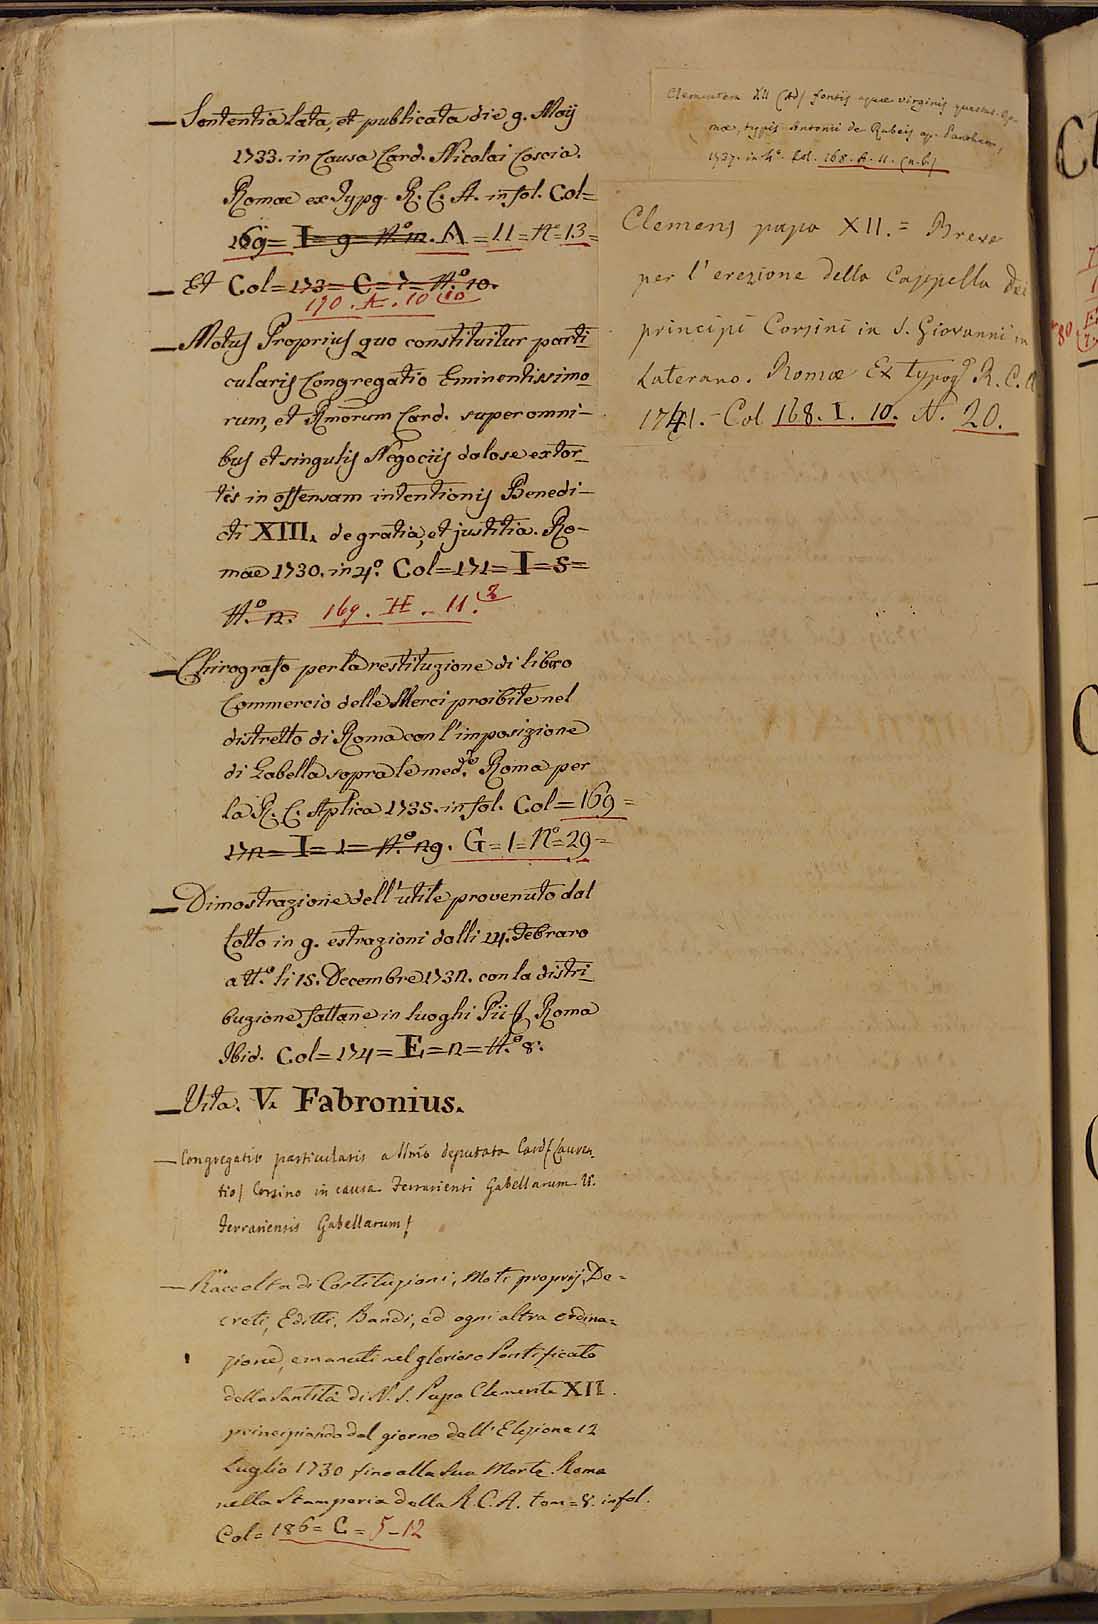 — Sententia Lata, et publicata die 9. Maij
1733. in Causa Card. Nicolai Coscia.
Romae ex Typg. R. C. A. in fol. Col=
169= I= 9= N.o 12. A = 11 = No= 13=
— Et Col= 173= C= 7= N.o 10.
170. A. 10 (10
— Motus Proprius quo constituitur parti-
cularis Congregatio Eminentissimo-
rum, et Rmorum Card. super omni-
bus et singulis Negociis dolose extor-
tis in offensam intentionis Benedi-
cti XIII. de gratia, et justitia. Ro-
mae 1730. in 4.o Col= 171= I= 5=
N.o 12. 169. H. 11.
— Chirografo per la restituzione di libro
Commercio delle Merci proibite nel
distretto di Roma con l'imposizione
di Gabella sopra le med.e Roma per
la R. C. Aplica 1735. in fol. Col= 169=
172= I= 1= N.o 29. G= 1= No= 29=
— Dimostrazione dell'utile provenuto dal
Lotto in 9. estrazioni dalli 14. Febraro
a tt.o li 15. Decembre 1732. con la distri-
buzione fattane in luoghi Pii Roma
Ibid. Col= 174= E= 2= N.o 8.
— Vita. V. Fabronius.
— Congregatio particularis a Ssmo deputata Card (Lauren-
tio) Corsino in causa Ferrariensi Gabellarum V.
Ferrariensis Gabellarum
— Raccolta di Costituzioni, Moti proprij, De=
creti, Editti, Bandi, ed ogni altra ordina=
zione, emanati nel glorioso Pontificato
della Santità di N. S. Papa Clemente XII.
principiando dal giorno dell'Elezione 12
Luglio 1730 fino alla sua Morte. Roma
nella Stamperia della R. C. A. tom= 8. in fol.
Col= 186= C= 5-12
Clementem XII (Ad) fontis aquae virginis
mae, typis Antonii de Rubeis ap. Pantheon,
1737. in 4o. Col. 168. A. 11. (n. 6)
Clemens papa XII. = Breve
per l'erezione della Cappella dei
principi Corsini in S. Giovanni in
Laterano. Romae Ex typog. R. C. A
1741. - Col 168. I. 10. N. 20.